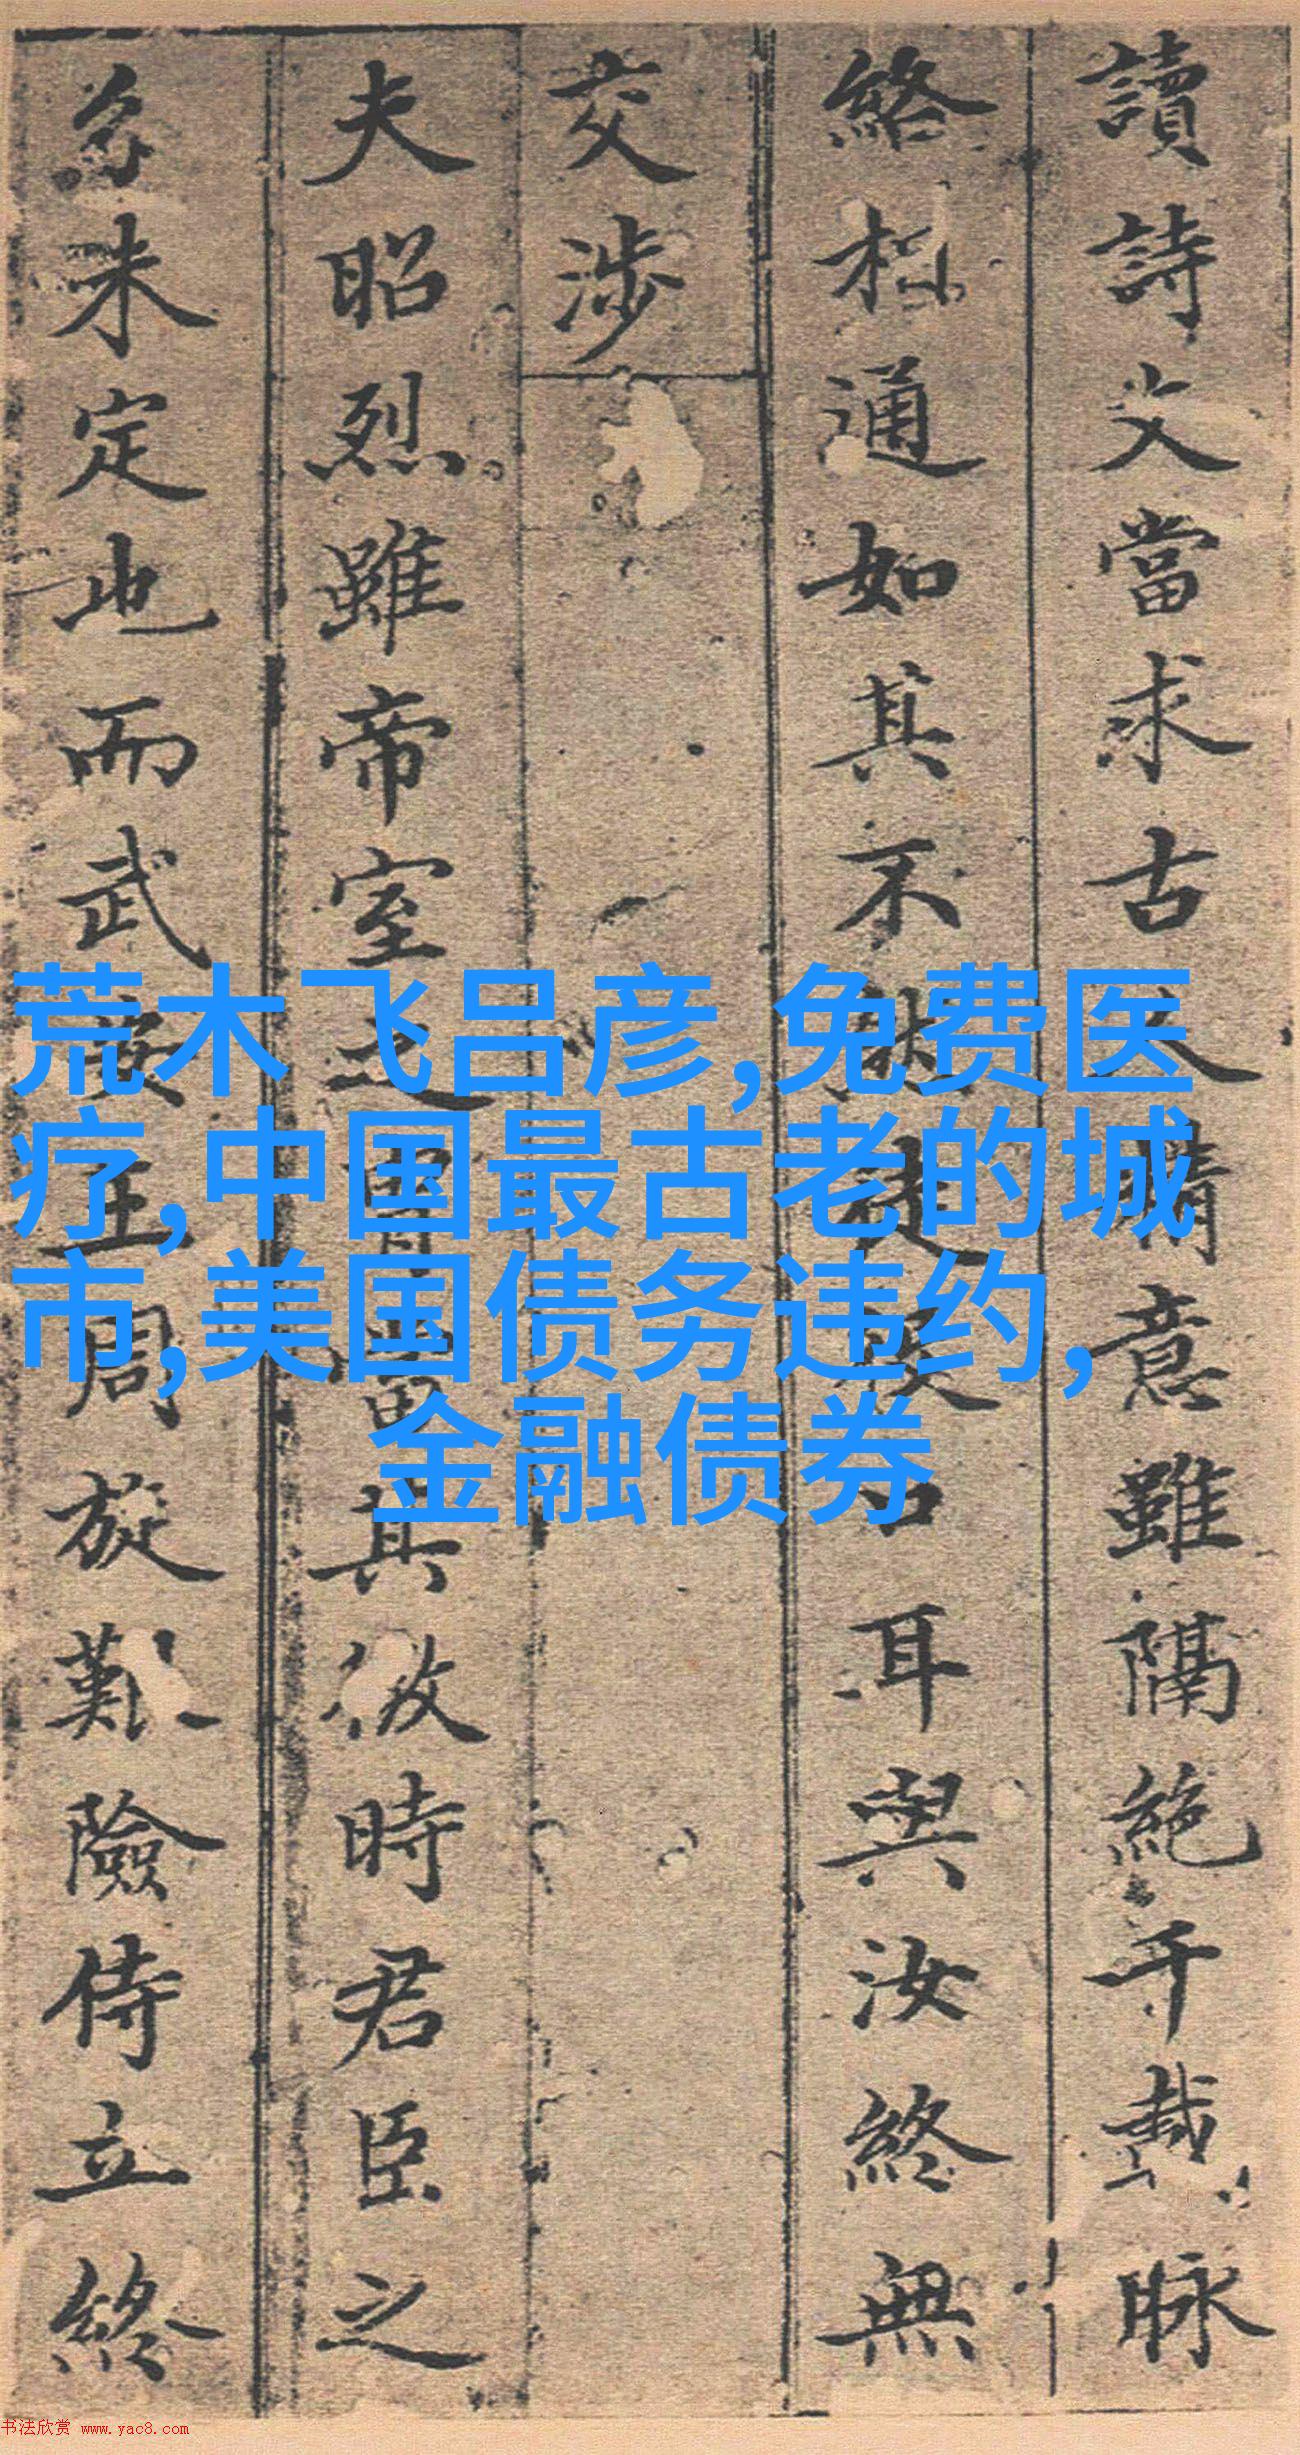 讀詩文當求古人情意雖隔絕千載脉
絡相通如其不然徒設口耳與汝終無
交涉
夫昭烈雖帝室之胄當其微時君臣之
分未定也而武安王周旋難險侍立終
荒木飞吕彦,免费医
疗,中国最古老的城
市,美国债务违约,
金融债券
书法欣赏 www.yac8.com